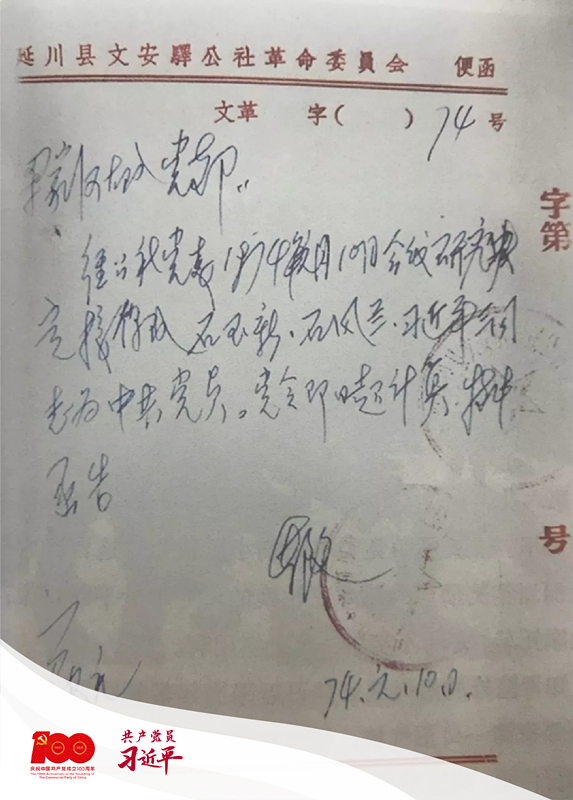 延川县文安驛公社革命委員会 便函
文革 字( ) 74 号
梁家河大队党部：
经公社党委1974年元月10日会议研究决
定接收 石玉新、石凤兰、习近平 同
志为中共党员。党令即日起计算，特此
函告
74.元.10日.
字第
号
100
1921
2021
庆祝中国共产党成立100周年
The 100th Anniversary of the Founding of
The Communist Party of China
共产党员
习近平